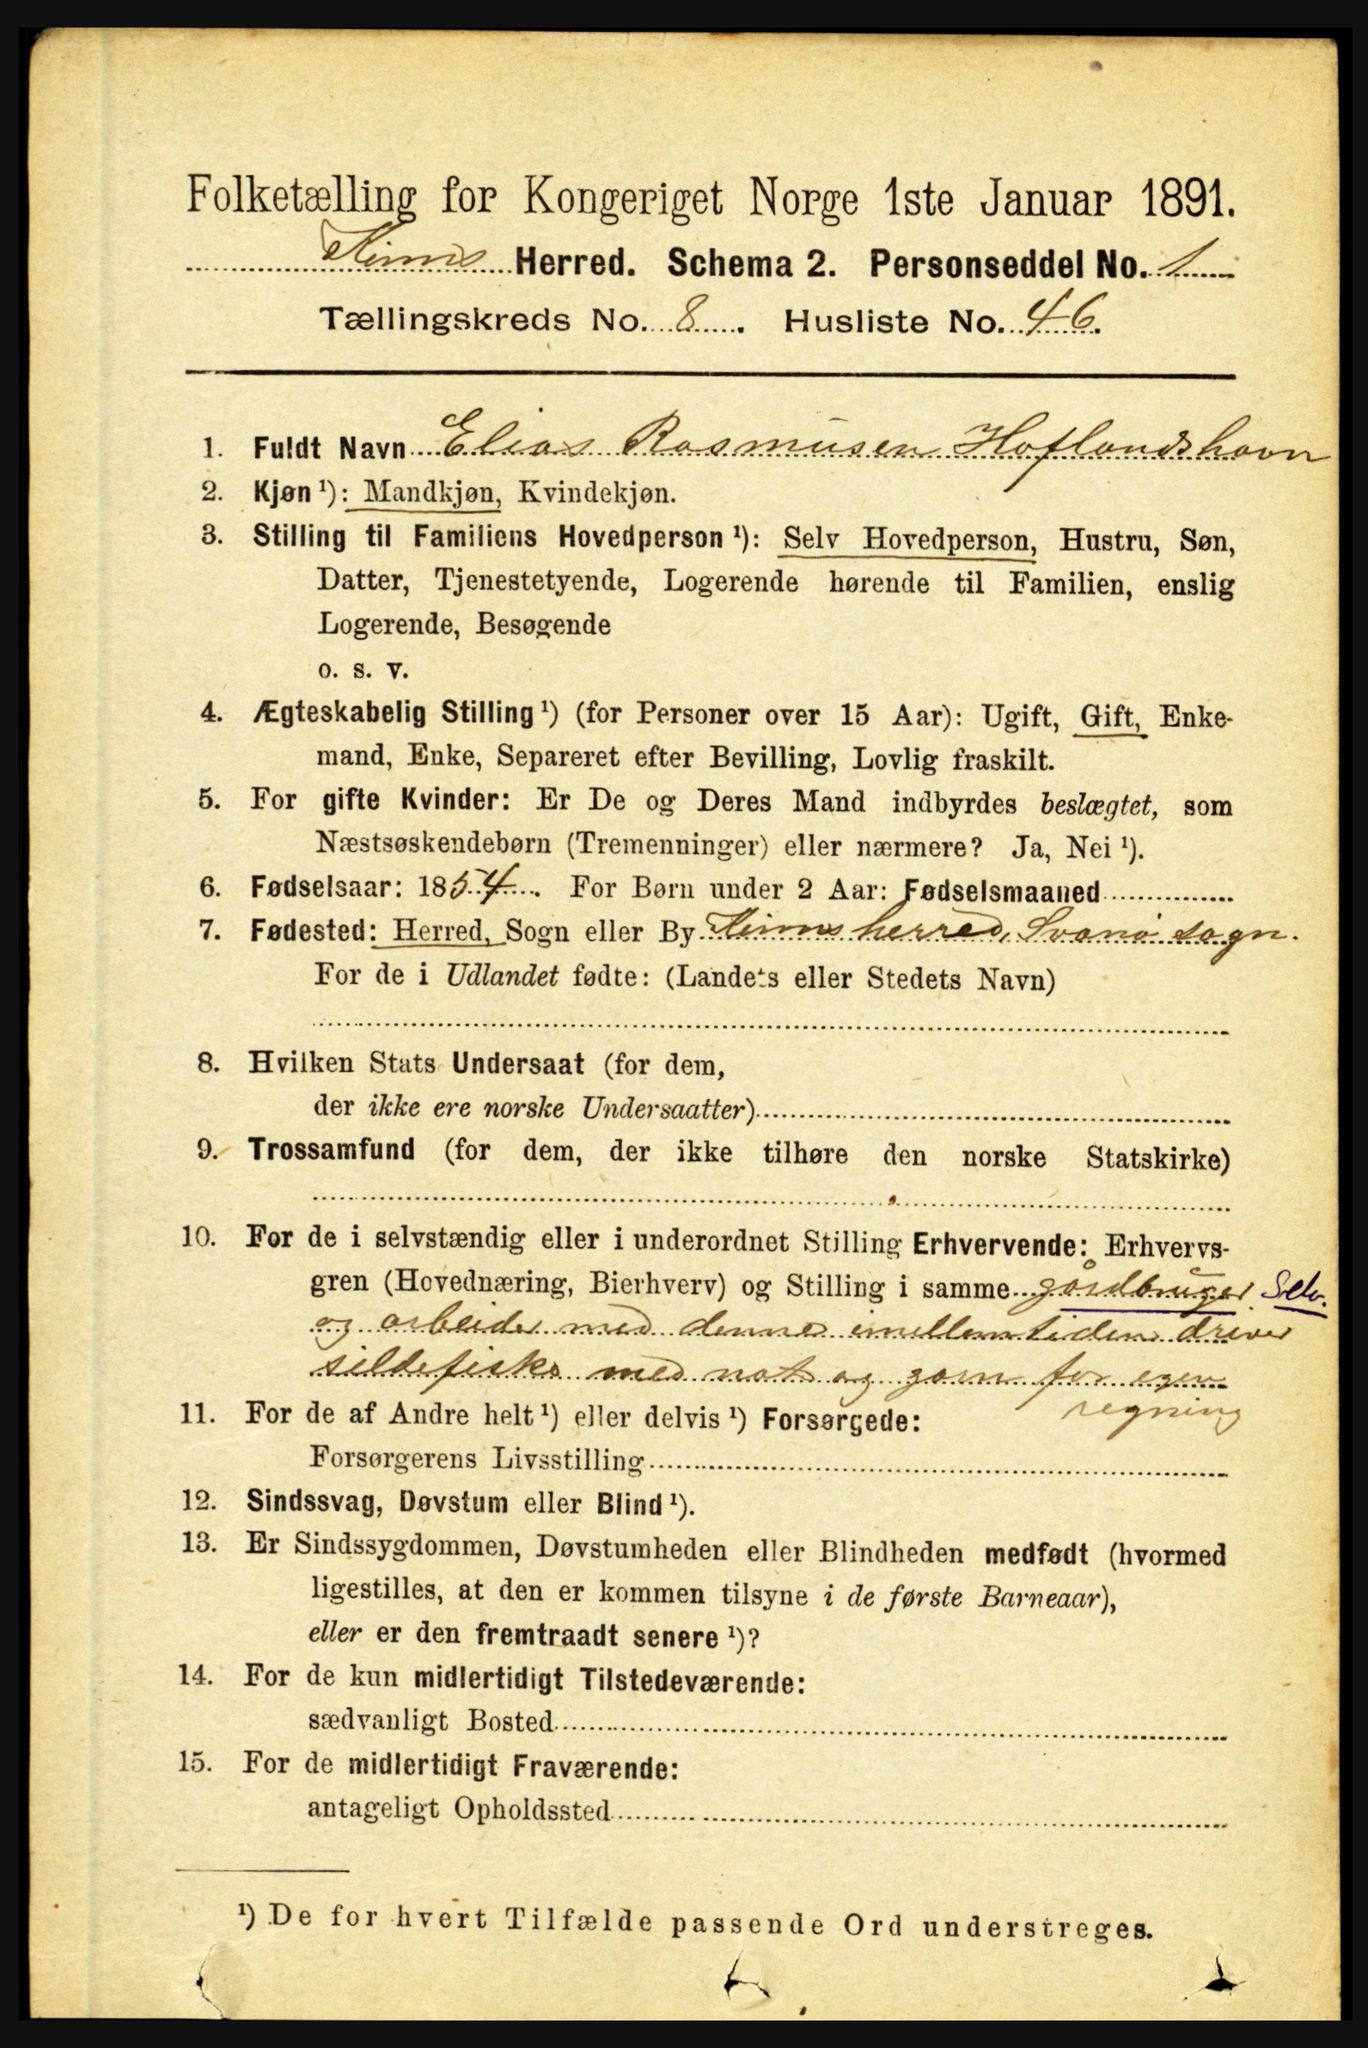 Folketælling for Kongeriget Norge 1ste Januar 1891.
Kinns Herred. Schema 2. Personseddel No. 1
Tællingskreds No. 8. Husliste No. 46.
1. Fuldt Navn Elias Rasmusen Hoflandshavn
2. Kjøn ¹): Mandkjøn, Kvindekjøn.
3. Stilling til Familiens Hovedperson ¹): Selv Hovedperson, Hustru, Søn,
Datter, Tjenestetyende, Logerende hørende til Familien, enslig
Logerende, Besøgende
o. s. v.
4. Ægteskabelig Stilling ¹) (for Personer over 15 Aar): Ugift, Gift, Enke-
mand, Enke, Separeret efter Bevilling, Lovlig fraskilt.
5. For gifte Kvinder: Er De og Deres Mand indbyrdes beslægtet, som
Næstsøskendebørn (Tremenninger) eller nærmere? Ja, Nei ¹).
6. Fødselsaar: 1854. For Børn under 2 Aar: Fødselsmaaned
7. Fødested: Herred, Sogn eller By Kinns herred, Svanø sogn.
For de i Udlandet fødte: (Landets eller Stedets Navn)
8. Hvilken Stats Undersaat (for dem,
der ikke ere norske Undersaatter)
9. Trossamfund (for dem, der ikke tilhøre den norske Statskirke)
10. For de i selvstændig eller i underordnet Stilling Erhvervende: Erhvervs-
gren (Hovednæring, Bierhverv) og Stilling i samme gårdbruger Selv.
og arbeider med denne imellemtiden driver
sildefiske med not og garn for egen
regning
11. For de af Andre helt ¹) eller delvis ¹) Forsørgede:
Forsørgerens Livsstilling
12. Sindssvag, Døvstum eller Blind ¹).
13. Er Sindssygdommen, Døvstumheden eller Blindheden medfødt (hvormed
ligestilles, at den er kommen tilsyne i de første Barneaar),
eller er den fremtraadt senere ¹)?
14. For de kun midlertidigt Tilstedeværende:
sædvanligt Bosted
15. For de midlertidigt Fraværende:
antageligt Opholdssted
¹) De for hvert Tilfælde passende Ord understreges.